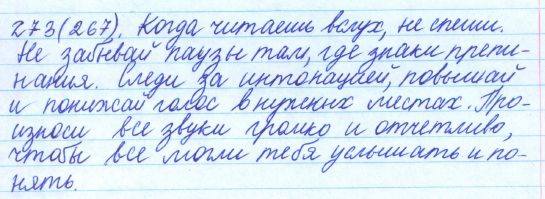 273(267). Когда читаешь вслух, не спеши.
Не забывай паузы там, где знаки препи-
нания. Следи за интонацией, повышай
и понижай голос в нужных местах. Про-
износи все звуки громко и отчетливо,
чтобы все могли тебя услышать и по-
нять.